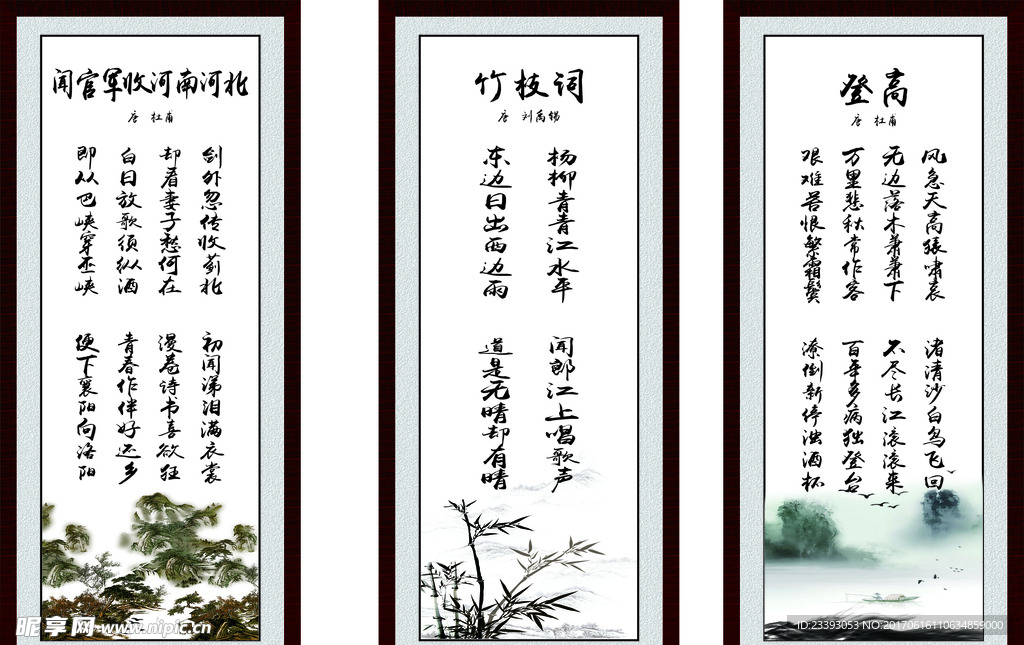 闻官军收河南河北
唐 杜甫
剑外忽传收蓟北
初闻涕泪满衣裳
却看妻子愁何在
漫卷诗书喜欲狂
白日放歌须纵酒
青春作伴好还乡
即从巴峡穿巫峡
便下襄阳向洛阳
竹枝词
唐 刘禹锡
杨柳青青江水平
闻郎江上唱歌声
东边日出西边雨
道是无晴却有晴
登高
唐 杜甫
风急天高猿啸哀
渚清沙白鸟飞回
无边落木萧萧下
不尽长江滚滚来
万里悲秋常作客
百年多病独登台
艰难苦恨繁霜鬓
潦倒新停浊酒杯
昵享网 www.nipic.cn
ID:23393053 NO:20170616110634859000